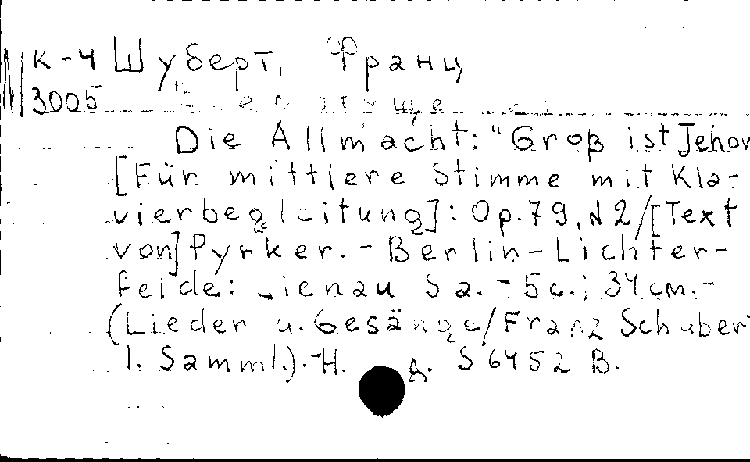 К-4 Шуберт, Франц
3005
Die Allmacht: "Groß ist Jehov
[Für mittlere Stimme mit Kla-
vierbegleitung]: Op.79, N2/[Text
von] Pyrker. - Berlin-Lichter-
felde: Lienau S a. - 5 c.; 34 см.-
(Lieder u. Gesänge/Franz Schuber
1. Samml.).-H. S 6452 B.